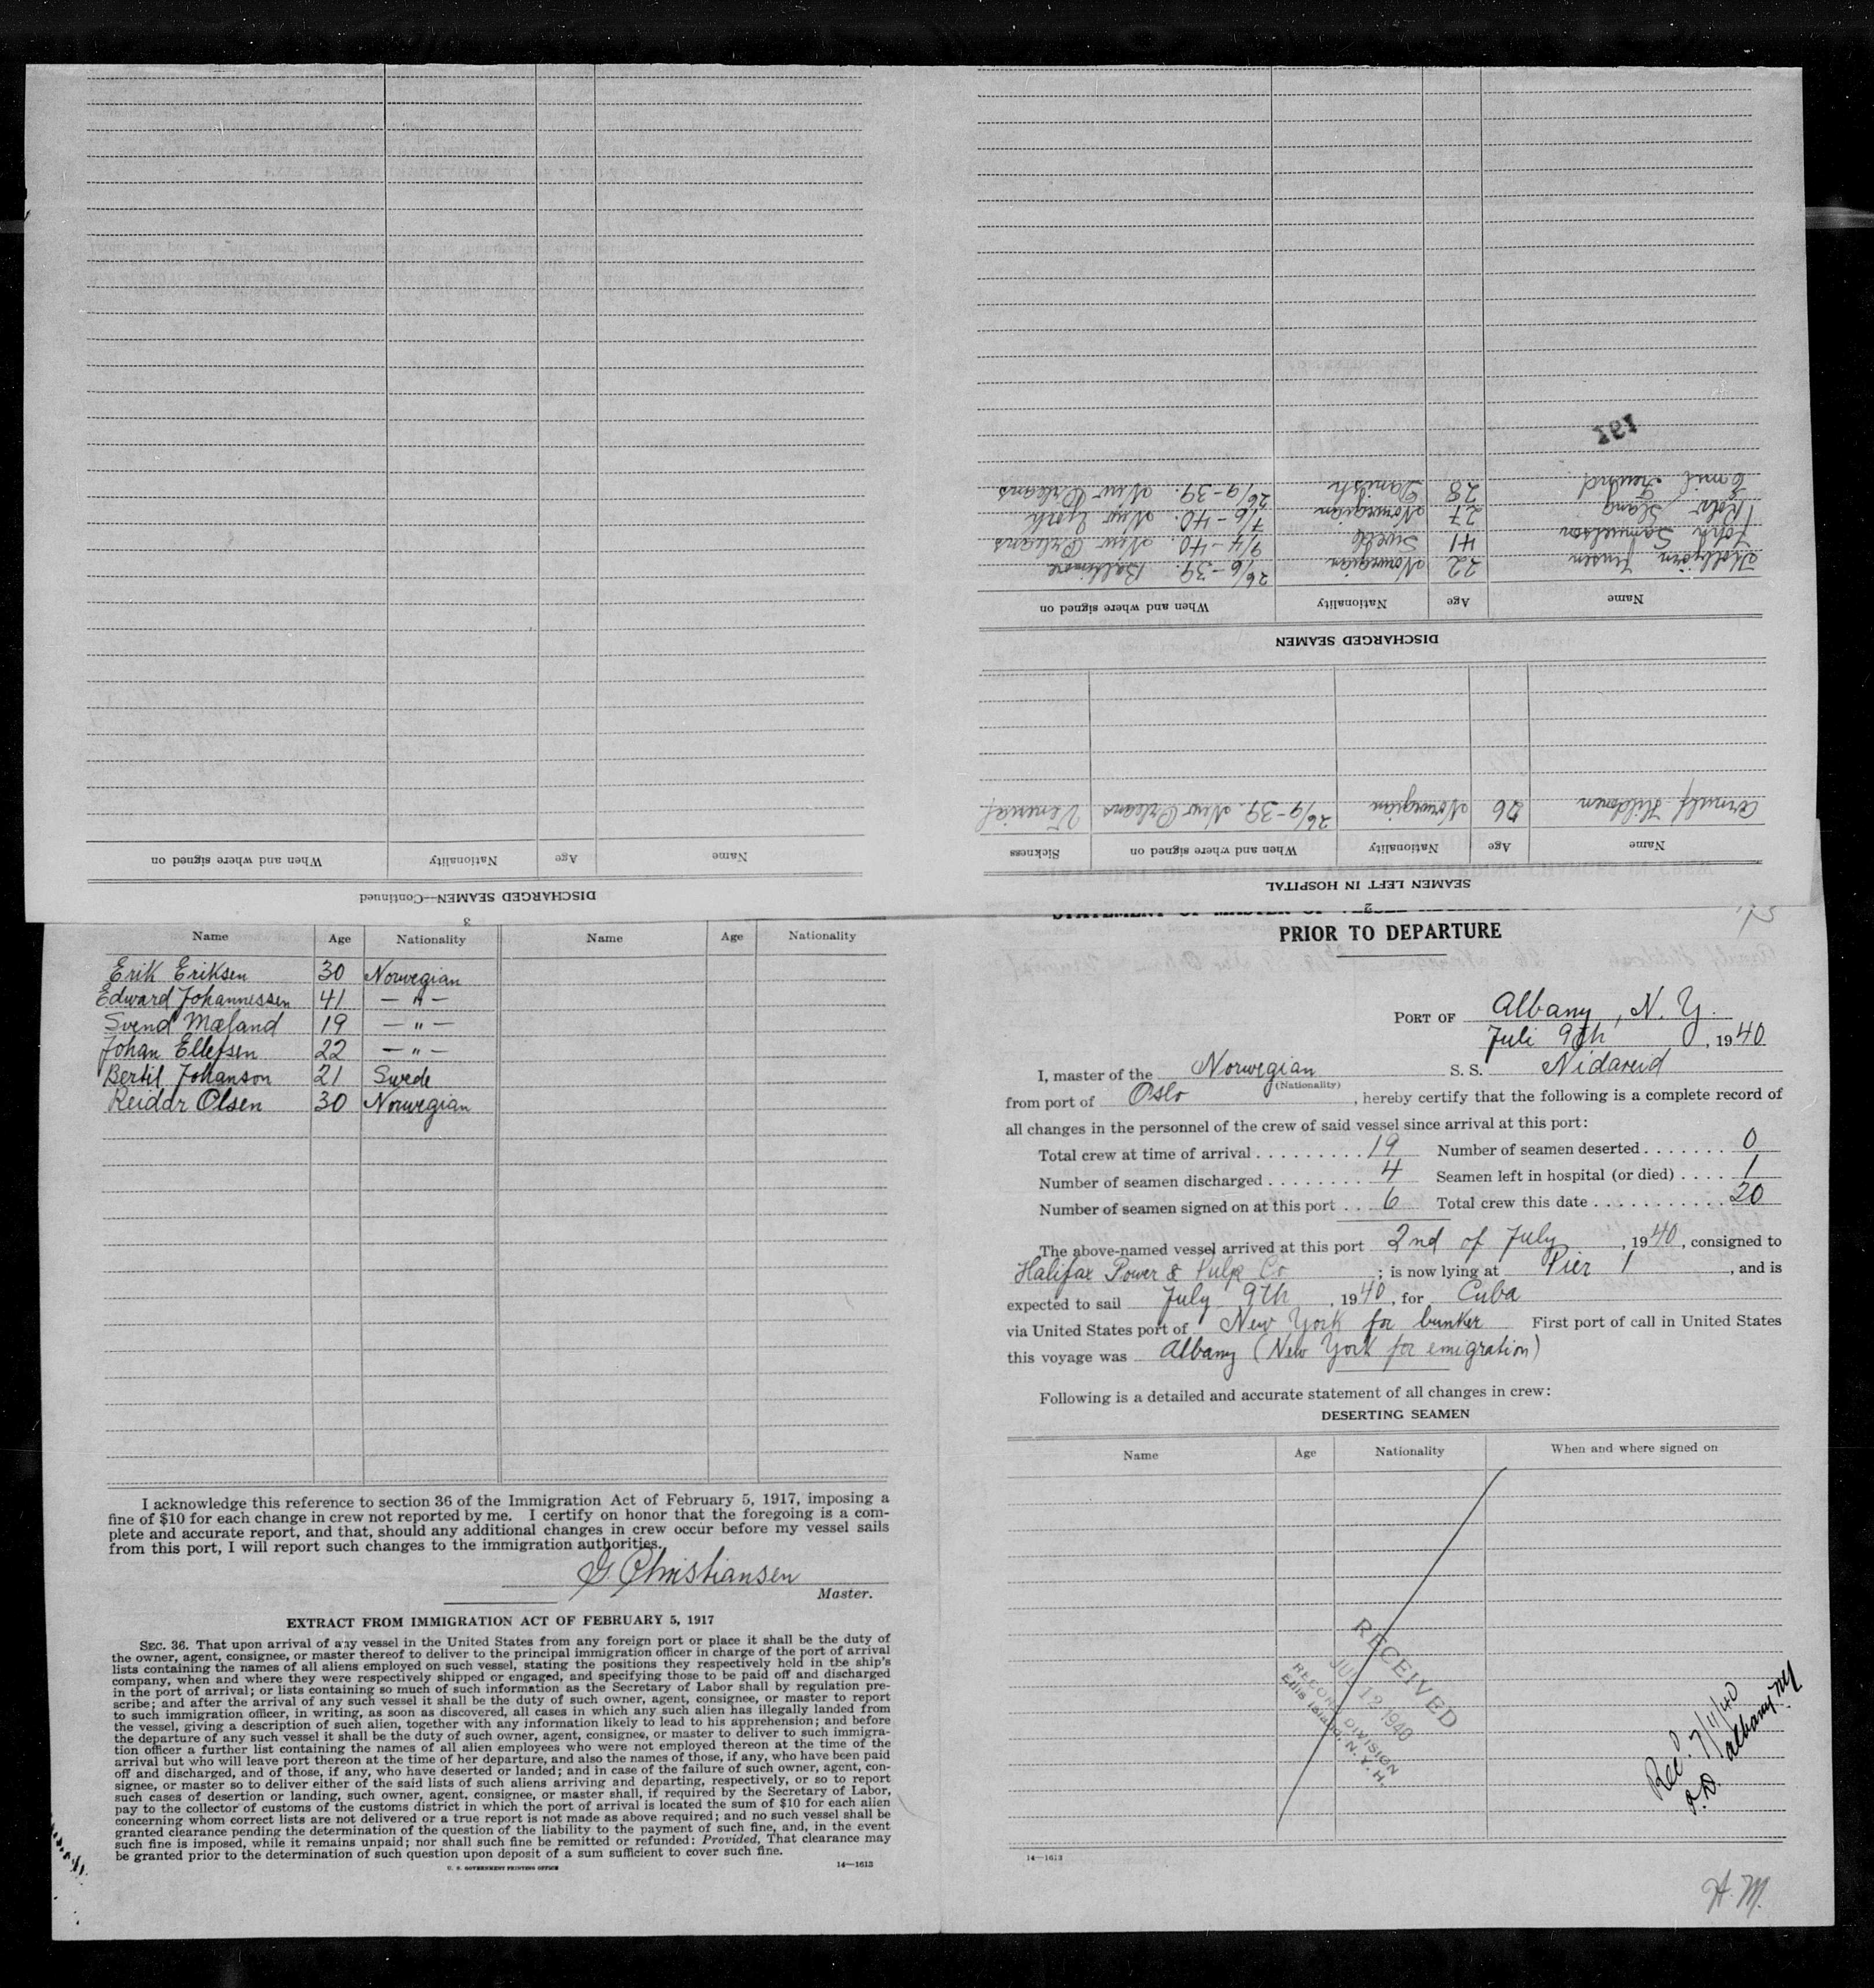 DISCHARGED SEAMEN—Continued
Name Age Nationality When and where signed on
3
2
SEAMEN LEFT IN HOSPITAL
Name Age Nationality When and where signed on Sickness
Hildonen 26 Norwegian 26/9-39. New Orleans Venerial
DISCHARGED SEAMEN
Name Age Nationality When and where signed on
Jensen 22 Norwegian 26/6-39. Baltimore
John Samuelson 41 Swede 9/4-40. New Orleans
27 Norwegian 7/6-40. New York
Emil 28 Danish 26/9-39. New Orleans
191
Name Age Nationality Name Age Nationality
Erik Eriksen 30 Norwegian
Edward Johannessen 41 — " —
Svend Mæland 19 — " —
Johan Ellefsen 22 — " —
Bertil Johanson 21 Swede
Reidar Olsen 30 Norwegian
I acknowledge this reference to section 36 of the Immigration Act of February 5, 1917, imposing a
fine of $10 for each change in crew not reported by me. I certify on honor that the foregoing is a com-
plete and accurate report, and that, should any additional changes in crew occur before my vessel sails
from this port, I will report such changes to the immigration authorities.
G. Christiansen
Master.
EXTRACT FROM IMMIGRATION ACT OF FEBRUARY 5, 1917
SEC. 36. That upon arrival of any vessel in the United States from any foreign port or place it shall be the duty of
the owner, agent, consignee, or master thereof to deliver to the principal immigration officer in charge of the port of arrival
lists containing the names of all aliens employed on such vessel, stating the positions they respectively hold in the ship's
company, when and where they were respectively shipped or engaged, and specifying those to be paid off and discharged
in the port of arrival; or lists containing so much of such information as the Secretary of Labor shall by regulation pre-
scribe; and after the arrival of any such vessel it shall be the duty of such owner, agent, consignee, or master to report
to such immigration officer, in writing, as soon as discovered, all cases in which any such alien has illegally landed from
the vessel, giving a description of such alien, together with any information likely to lead to his apprehension; and before
the departure of any such vessel it shall be the duty of such owner, agent, consignee, or master to deliver to such immigra-
tion officer a further list containing the names of all alien employees who were not employed thereon at the time of the
arrival but who will leave port thereon at the time of her departure, and also the names of those, if any, who have been paid
off and discharged, and of those, if any, who have deserted or landed; and in case of the failure of such owner, agent, con-
signee, or master so to deliver either of the said lists of such aliens arriving and departing, respectively, or so to report
such cases of desertion or landing, such owner, agent, consignee, or master shall, if required by the Secretary of Labor,
pay to the collector of customs of the customs district in which the port of arrival is located the sum of $10 for each alien
concerning whom correct lists are not delivered or a true report is not made as above required; and no such vessel shall be
granted clearance pending the determination of the question of the liability to the payment of such fine, and, in the event
such fine is imposed, while it remains unpaid; nor shall such fine be remitted or refunded: Provided, That clearance may
be granted prior to the determination of such question upon deposit of a sum sufficient to cover such fine.
U. S. GOVERNMENT PRINTING OFFICE 14—1613
PRIOR TO DEPARTURE
PORT OF Albany, N. Y.
Juli 9th, 1940
I, master of the Norwegian S. S. Nidareid
(Nationality)
from port of Oslo, hereby certify that the following is a complete record of
all changes in the personnel of the crew of said vessel since arrival at this port:
Total crew at time of arrival 19 Number of seamen deserted 0
Number of seamen discharged 4 Seamen left in hospital (or died) 1
Number of seamen signed on at this port 6 Total crew this date 20
The above-named vessel arrived at this port 2nd of July, 1940, consigned to
Halifax Power & Pulp Co; is now lying at Pier 1, and is
expected to sail July 9th, 1940, for Cuba
via United States port of New York for bunker First port of call in United States
this voyage was Albany (New York for emigration)
Following is a detailed and accurate statement of all changes in crew:
DESERTING SEAMEN
Name Age Nationality When and where signed on
RECEIVED
JUL 12 1940
RECORD DIVISION
Ellis Island, N. Y. H.
Rec'd 7/11/40
Albany NY
14—1613
H. M.